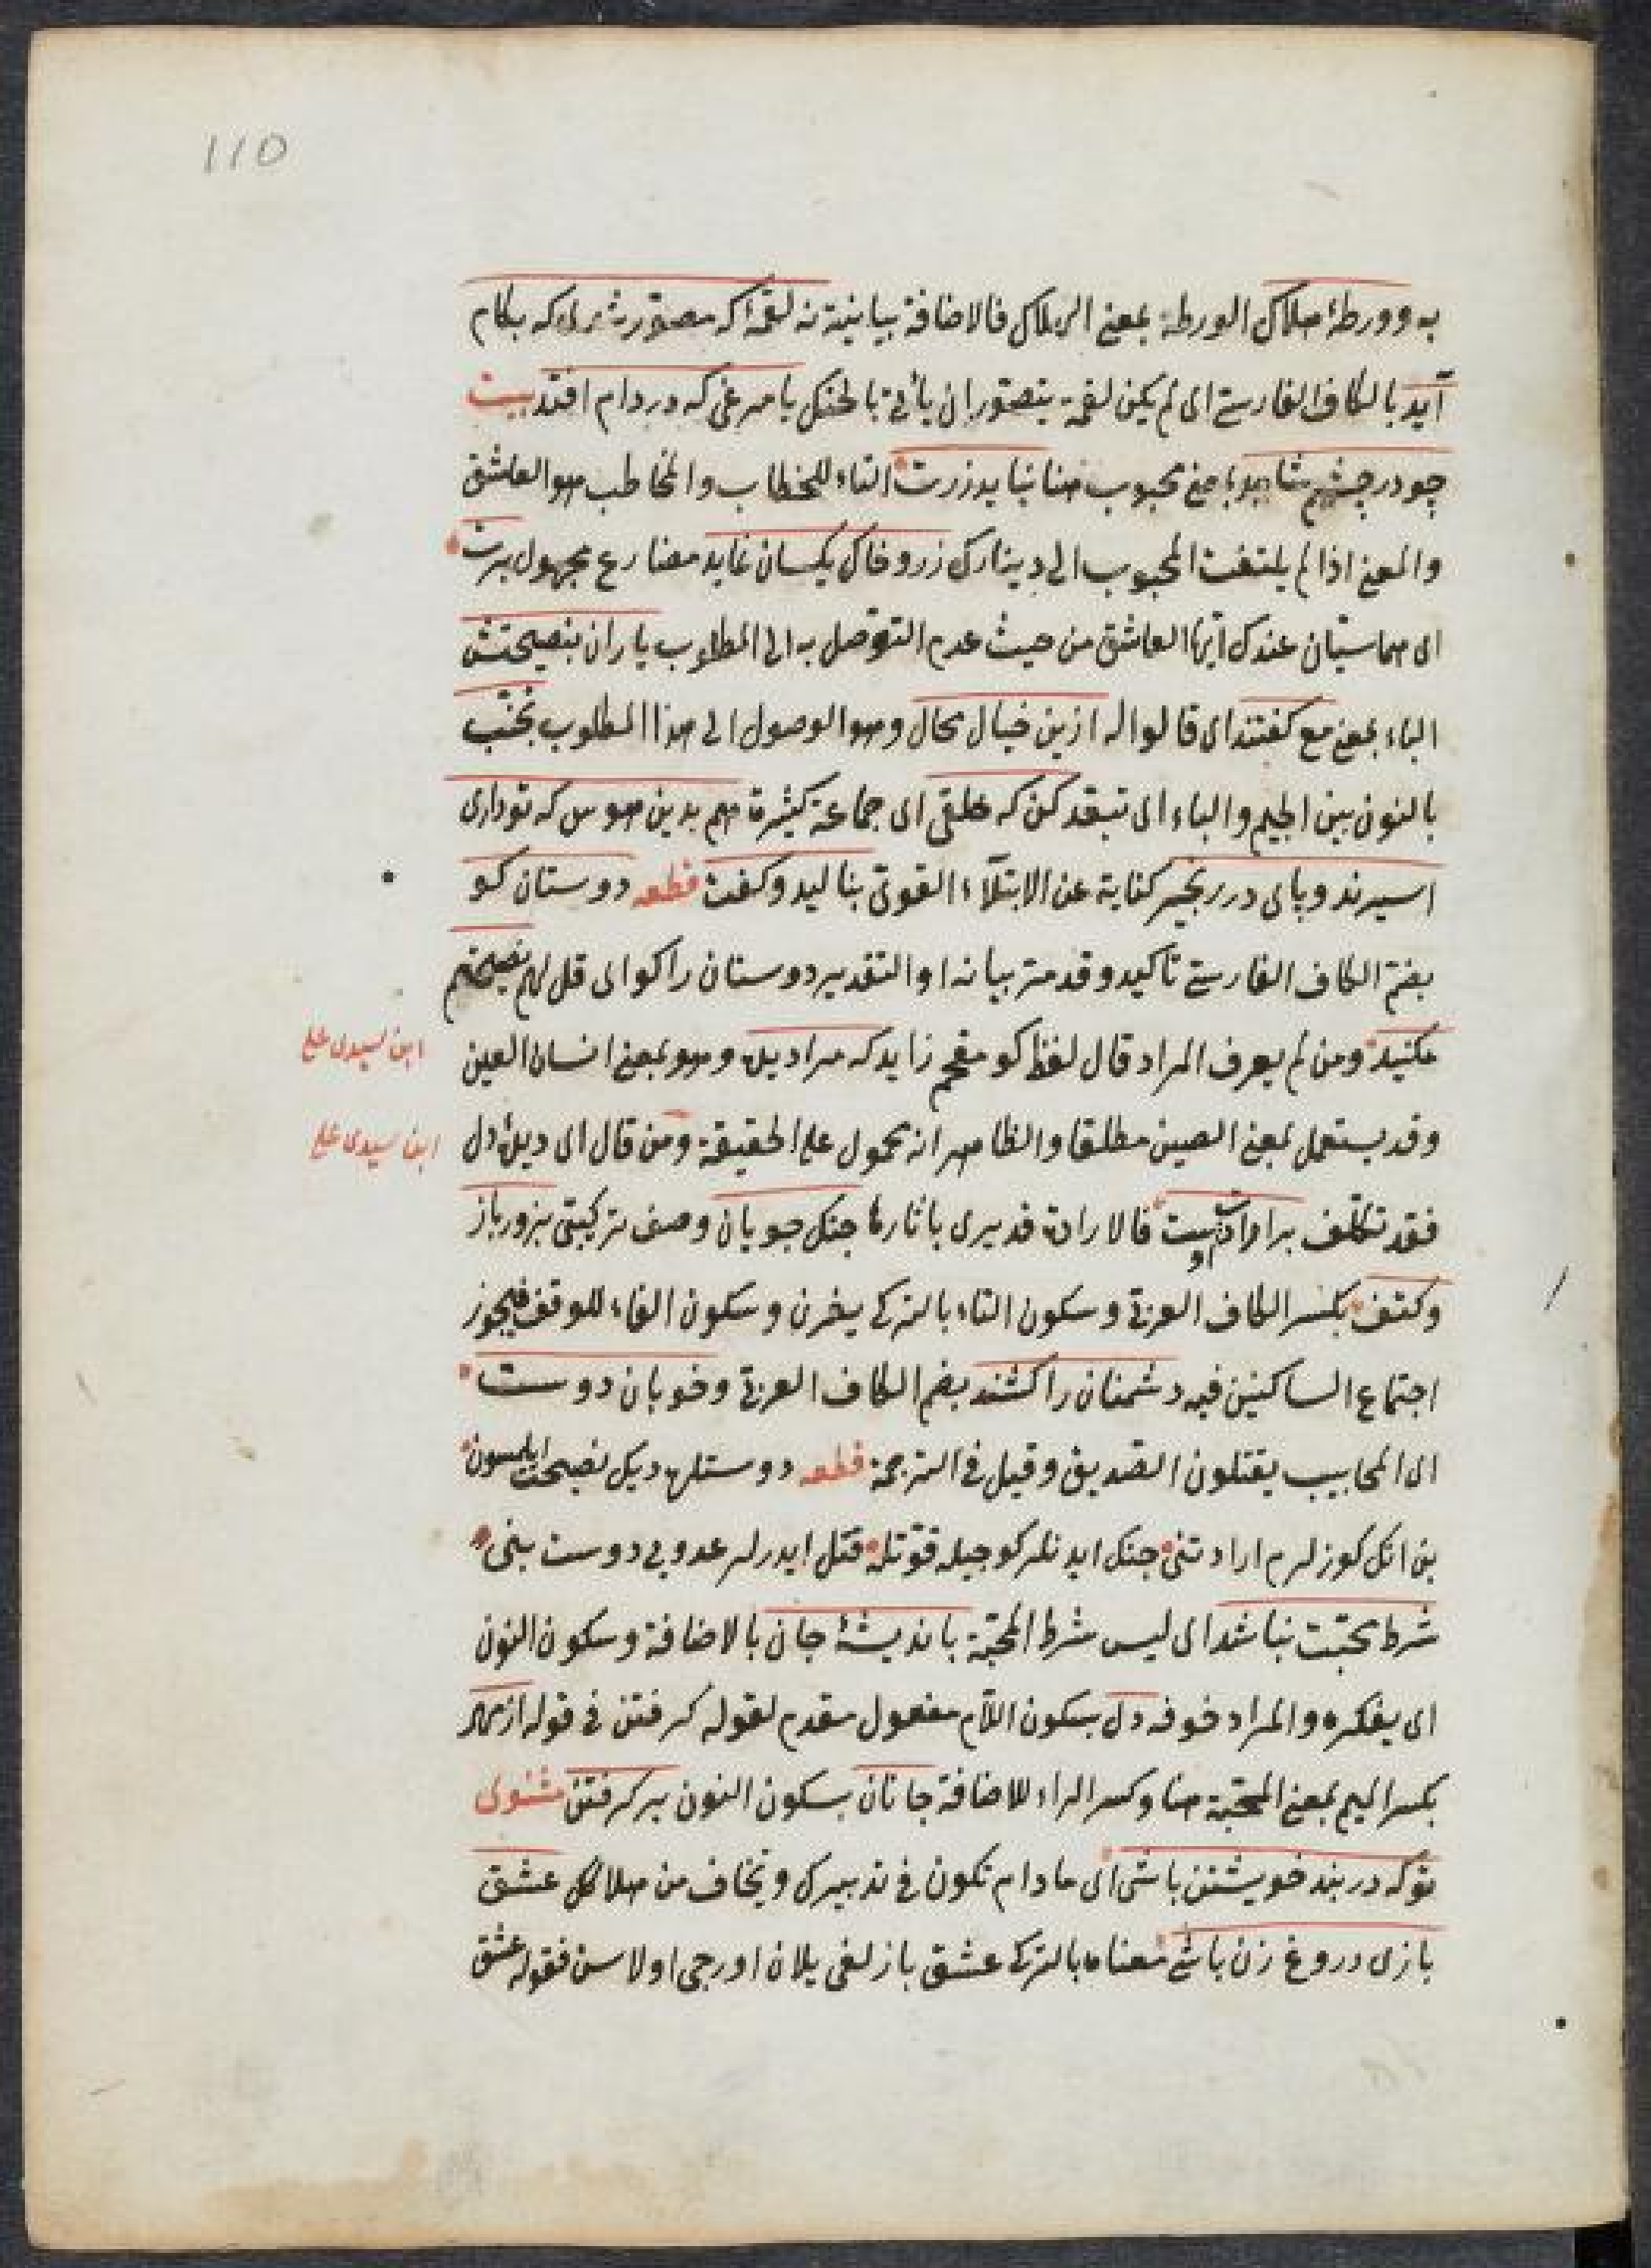 110
به وورطۀ هلاك الورطة بمعنى الهلاك فالاضافة بيانية نه لقمۀ كه مصوّر شدى كه بكام
آيد بالكاف الفارسى اى لم يكن لقمة يتصوّر ان يأتى بالحنك يا مرغى كه در دام افتد بيت
چو در چشم شاهد بمعنى محبوب هنا نيايد زرت التاء للخطاب والمخاطب هو العاشق
والمعنى اذا لم يلتفت المحبوب الى دينارك زر وخاك يكسان نمايد مضارع مجهول برت
اى هما سيّان عندك ايها العاشق من حيث عدم التوصل به الى المطلوب ياران بنصيحتش
الباء بمعنى مع كفتند اى قالوا له ازين خيال محال وهو الوصول الى هذا المطلوب تجنّب
بالنون بين الجيم والباء اى تبعّد كن كه خلقى اى جماعة كثيرة هم بدين هوس كه تو دارى
اسيرند وپاى در زنجير كناية عن الابتلاء القوىّ بناليد وكفت قطعه دوستان كو
بضم الكاف الفارسى تأكيد وقد مرّ بيانه او التقدير دوستان را كو اى قل لهم نصيحتم
مكنيد ومن لم يعرف المراد قال لفظ كو مقحم زايد كه مرا ديده وهو بمعنى انسان العين
ابن سيدى على
وقد يستعمل بمعنى العين مطلقا والظاهر انه محمول على الحقيقة ومن قال اى ديدۀ دل
ابن سيدى على
فقد تكلّف بر ارادت اوست فالارادة قد يرى باثارها جنك جويان وصف تركيبى بزور بازو
وكتف بكسر الكاف العربى وسكون التاء بالتركى يغرن وسكون الفاء للوقف فيجوز
اجتماع الساكنين فيه دشمنان را كشند بضم الكاف العربى وخوبان دوست
اى المحابيب يقتلون الصديق وقيل فى الترجمة قطعه دوستلر ديك نصيحت ايلمسون
بن انك كوزلرم ارادتنى جنك ايدنلر كوجيله قوّتله قتل ايدرلر عدويى دوست بنى
شرط محبّت نباشد اى ليس شرط المحبّة بانديشۀ جان بالاضافة وسكون النون
اى بفكره والمراد خوفه دل بسكون اللام مفعول مقدم لقوله كرفتن فى قوله از مهر
بكسر الميم بمعنى المحبّة هنا وكسر الراء للاضافة جانان بسكون النون بركرفتن مثنوى
توكه در بند خويشتن باشى اى مادام تكون فى تدبيرك وتخاف من هلاكك عشق
بازى دروغ زن باشى معناه بالتركى عشق بازلغى يلان اورجى اولاسن فقوله عشق